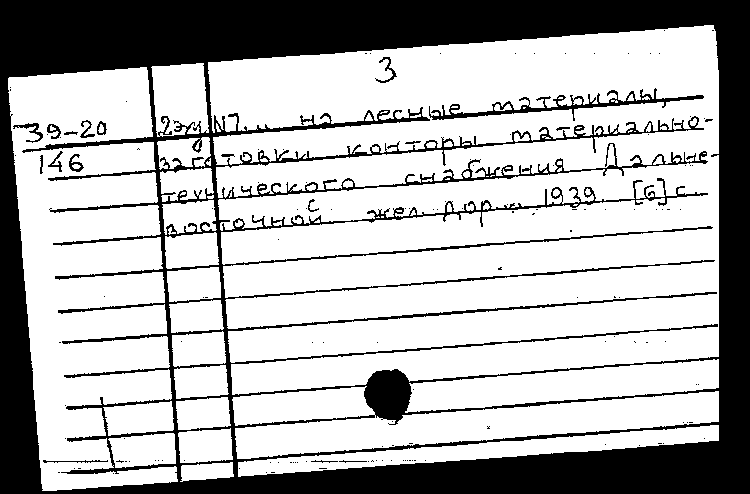 3
39-20 2экз. N7... на лесные материалы,
146 заготовки конторы материально-
технического снабжения Дальне-
восточной жел. дор... 1939. [6] с.